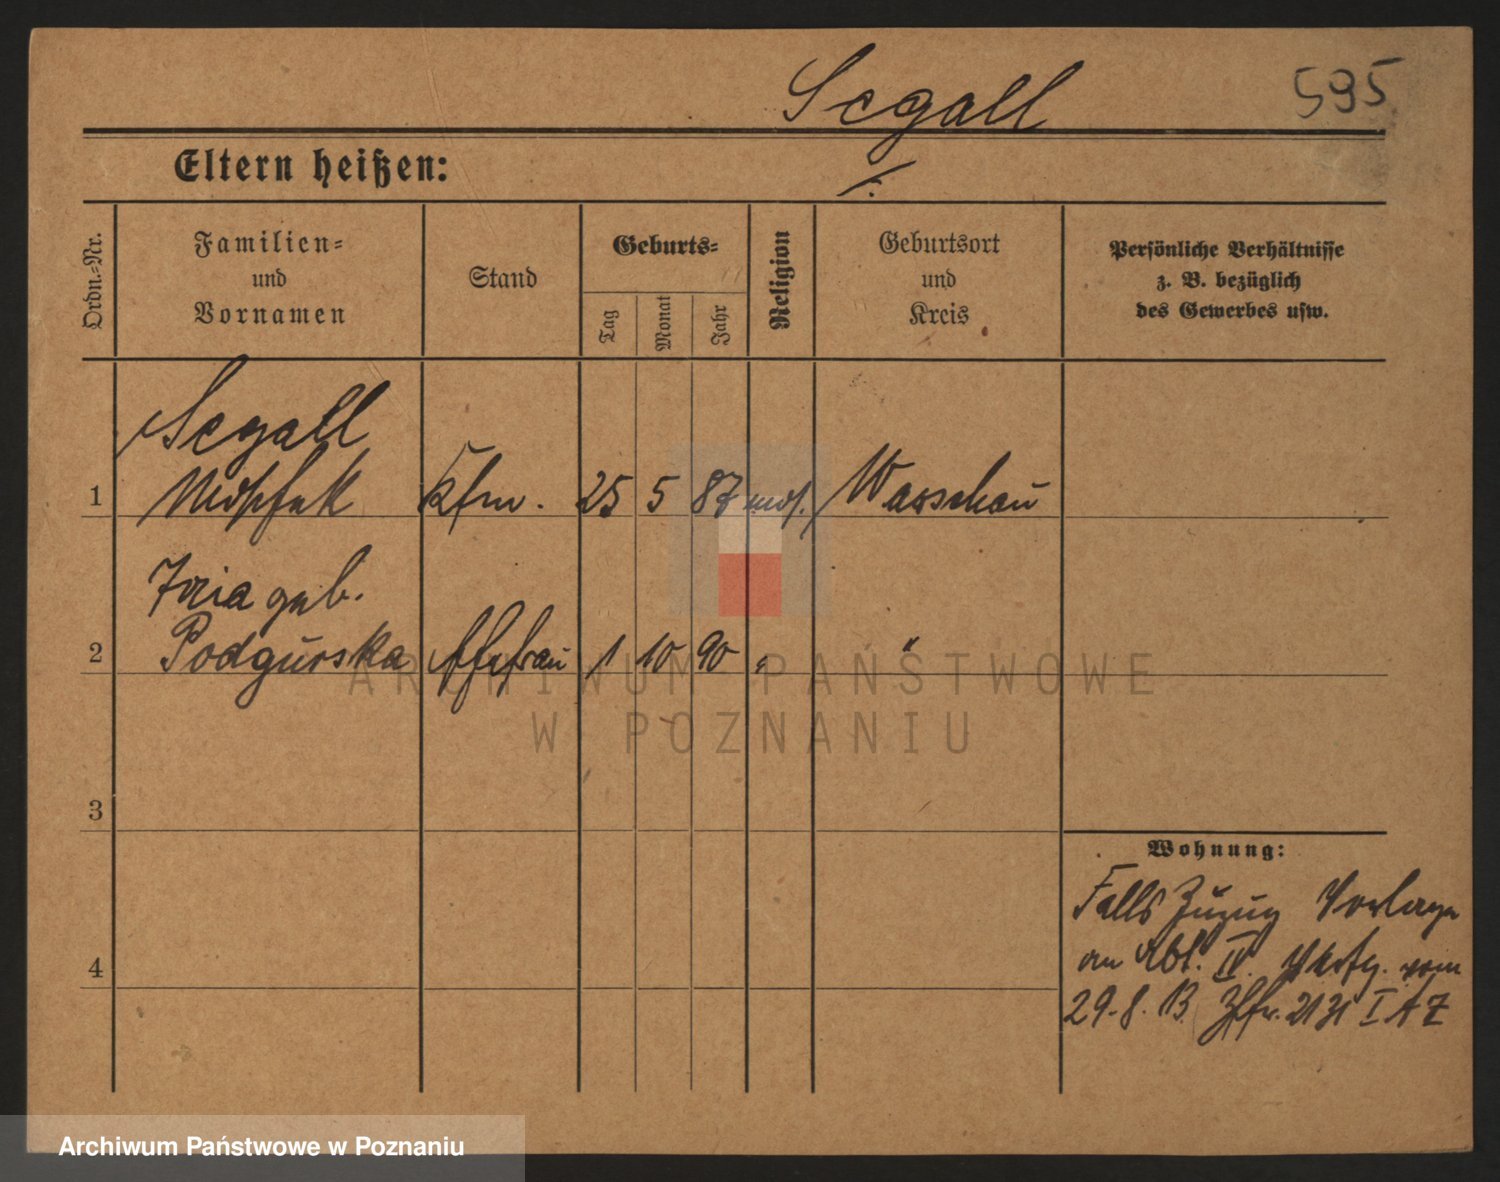 Segall
595
Eltern heißen:
Ordn.-Nr.
Familien-
und
Vornamen
Stand
Geburts-
Tag
Monat
Jahr
Religion
Geburtsort
und
Kreis
Persönliche Verhältnisse
z. B. bezüglich
des Gewerbes usw.
Segall
1 Kfm. 25 5 87 mos. Warschau
geb.
2 Podgurska Ehefrau 1 10 90 " "
3
4
Wohnung:
Falls Zuzug Vorlage
an Abt. IV. vom
29.8.13 2131 I A Z
ARCHIWUM PAŃSTWOWE
W POZNANIU
Archiwum Państwowe w Poznaniu